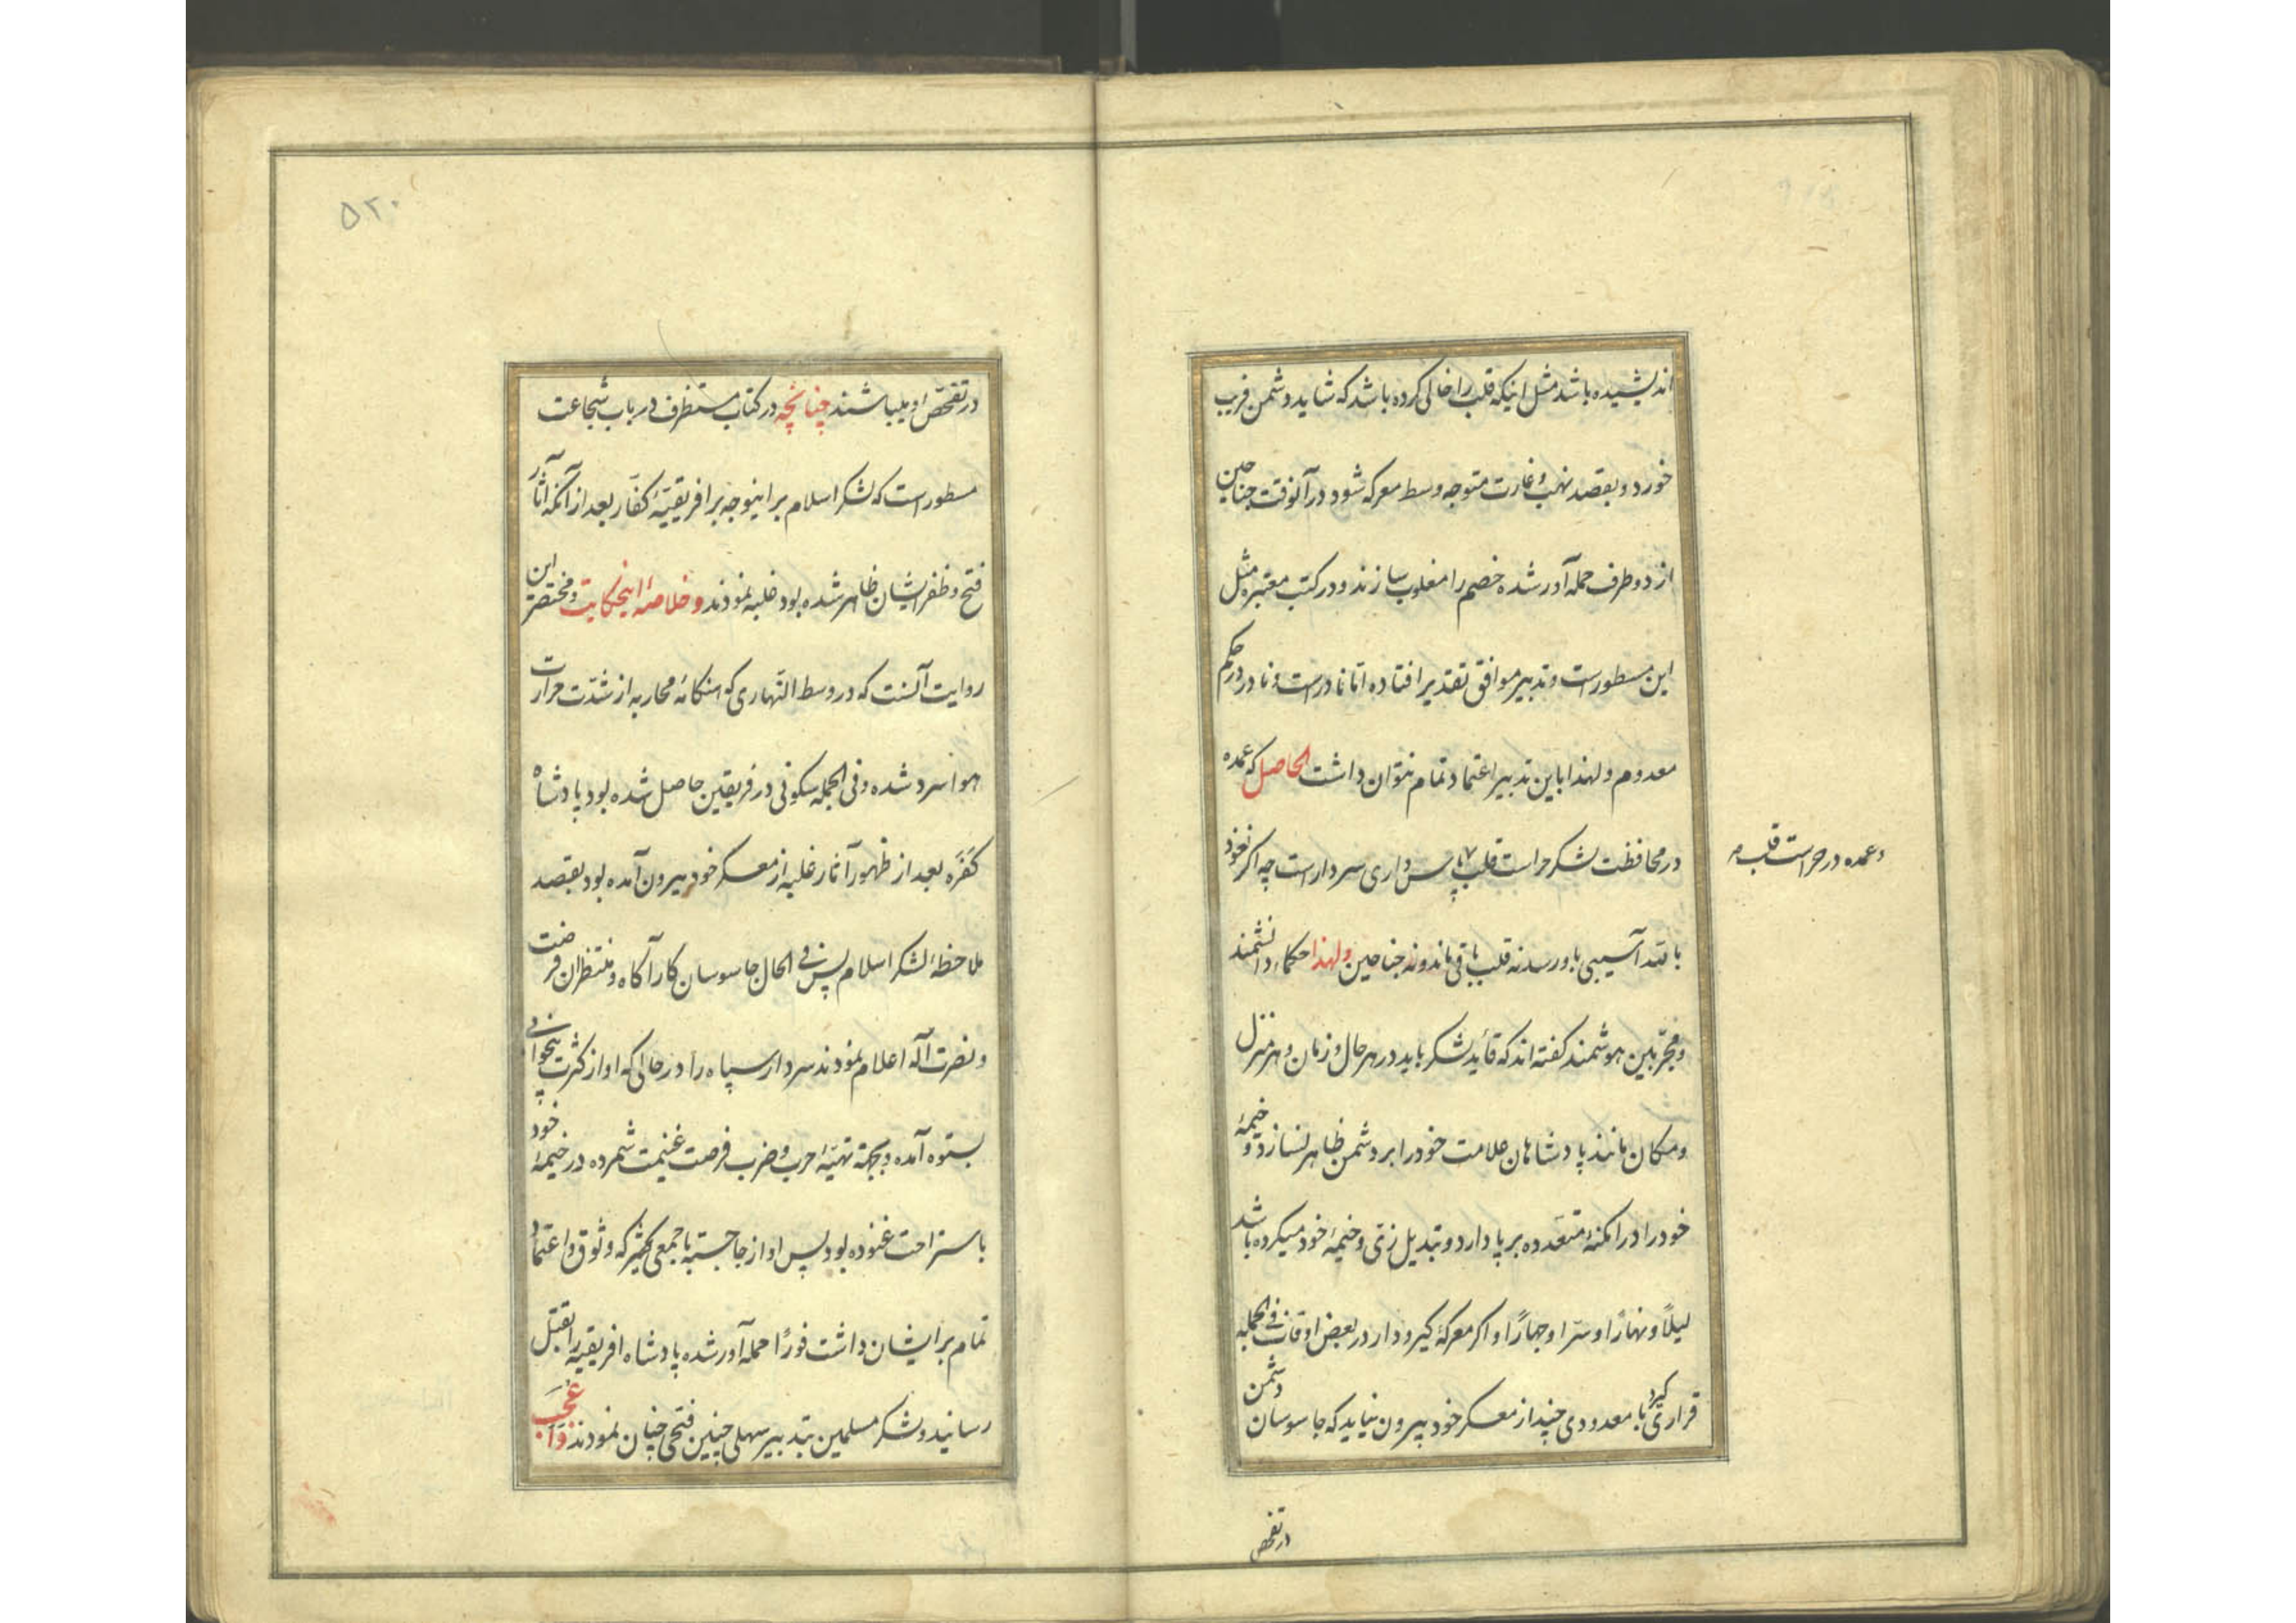 اندیشیده باشد مثل اینکه قلب را خالی کرده باشد که شاید دشمن فریب
خورد و بقصد نهب و غارت متوجه وسط معرکه شود در آنوقت جناحین
از دو طرف حمله آور شده خصم را مغلوب سازند و در کتب معتبره مثل
این مسطور است و تدبیر موافق تقدیر افتاده اما نادر است و نادر در حکم
معدوم و لهذا باین تدبیر اعتماد تمام نتوان داشت الحاصل که عمده
در محافظت لشکر حراست قلب و پاس داری سردار است چه اگر نعوذ
بالله آسیبی باو رسد نه قلب باقی ماند و نه جناحین و لهذا حکماء دانشمند
و مجربین هوشمند کفته اند که قاید لشکر باید در هر حال و زمان و هر منزل
و مکان مانند پادشاهان علامت خود را بر دشمن ظاهر نسازد و خیمهٔ
خود را در امکنهٔ متعدده بر پا دارد و تبدیل زی و خیمهٔ خود میکرده باشد
لیلاً و نهاراً و سراً و جهاراً و اکر معرکهٔ کیرودار در بعض اوقات فی الجمله
قراری کیرد با معدودی چند از معسکر خود بیرون نیاید که جاسوسان دشمن
در تفحص
و عمده در حراست قلب
۵۲۰
در تفحص او میباشند چنانچه در کتاب مستطرف در باب شجاعت
مسطور است که لشکر اسلام بر اینوجه بر افریقیهٔ کفار بعد از آنکه آثار
فتح و ظفر ایشان ظاهر شده بود غلبه نمودند و خلاصهٔ اینحکایت و مختصر این
روایت آنست که در وسط النهاری که هنکامهٔ محاربه از شدت حرارت
هوا سرد شده و فی الجمله سکونی در فریقین حاصل شده بود پادشاه
کفره بعد از ظهور آثار غلبه از معسکر خود بیرون آمده بود بقصد
ملاحظهٔ لشکر اسلام پس فی الحال جاسوسان کار آکاه و منتظران فرصت
و نصرت اله اعلام نمودند سردار سپاه را در حالی که او از کثرت بیخوابی
بستوه آمده و بجهة تهیهٔ حرب و ضرب فرصت غنیمت شمرده در خیمهٔ خود
باستراحت غنوده بود پس او از جا جسته با جمعی کثیر که وثوق و اعتماد
تمام بر ایشان داشت فوراً حمله آور شده پادشاه افریقیه را بقتل
رسانید و لشکر مسلمین بتدبیر سهلی چنین فتحی چنان نمودند